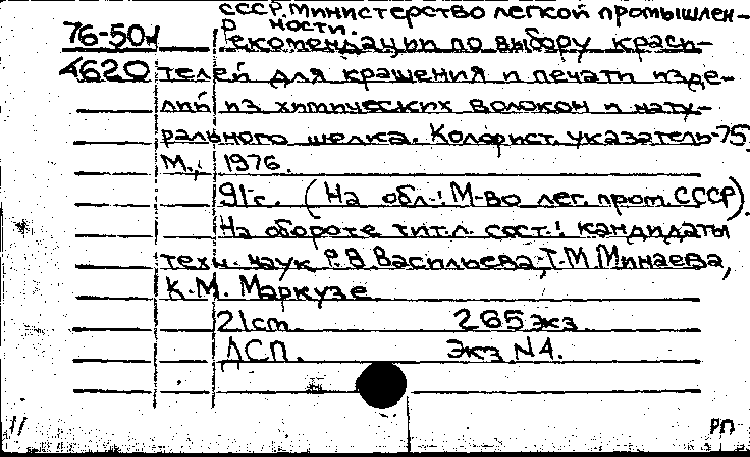 СССР. Министерство легкой промышлен-
ности.
76-50 Рекомендации по выбору краси-
4620 телей для крашения и печати изде-
лий из химических волокон и нату-
рального шелка. Колорист. указатель-75.
М., 1976.
91 с. (На обл.: М-во лег. пром. СССР).
На обороте тит.л. сост.: кандидаты
техн. наук Р.В. Васильева, Т.М. Минаева,
К.М. Маркузе
21 см. 265 экз.
ДСП. Экз N4.
11 РП